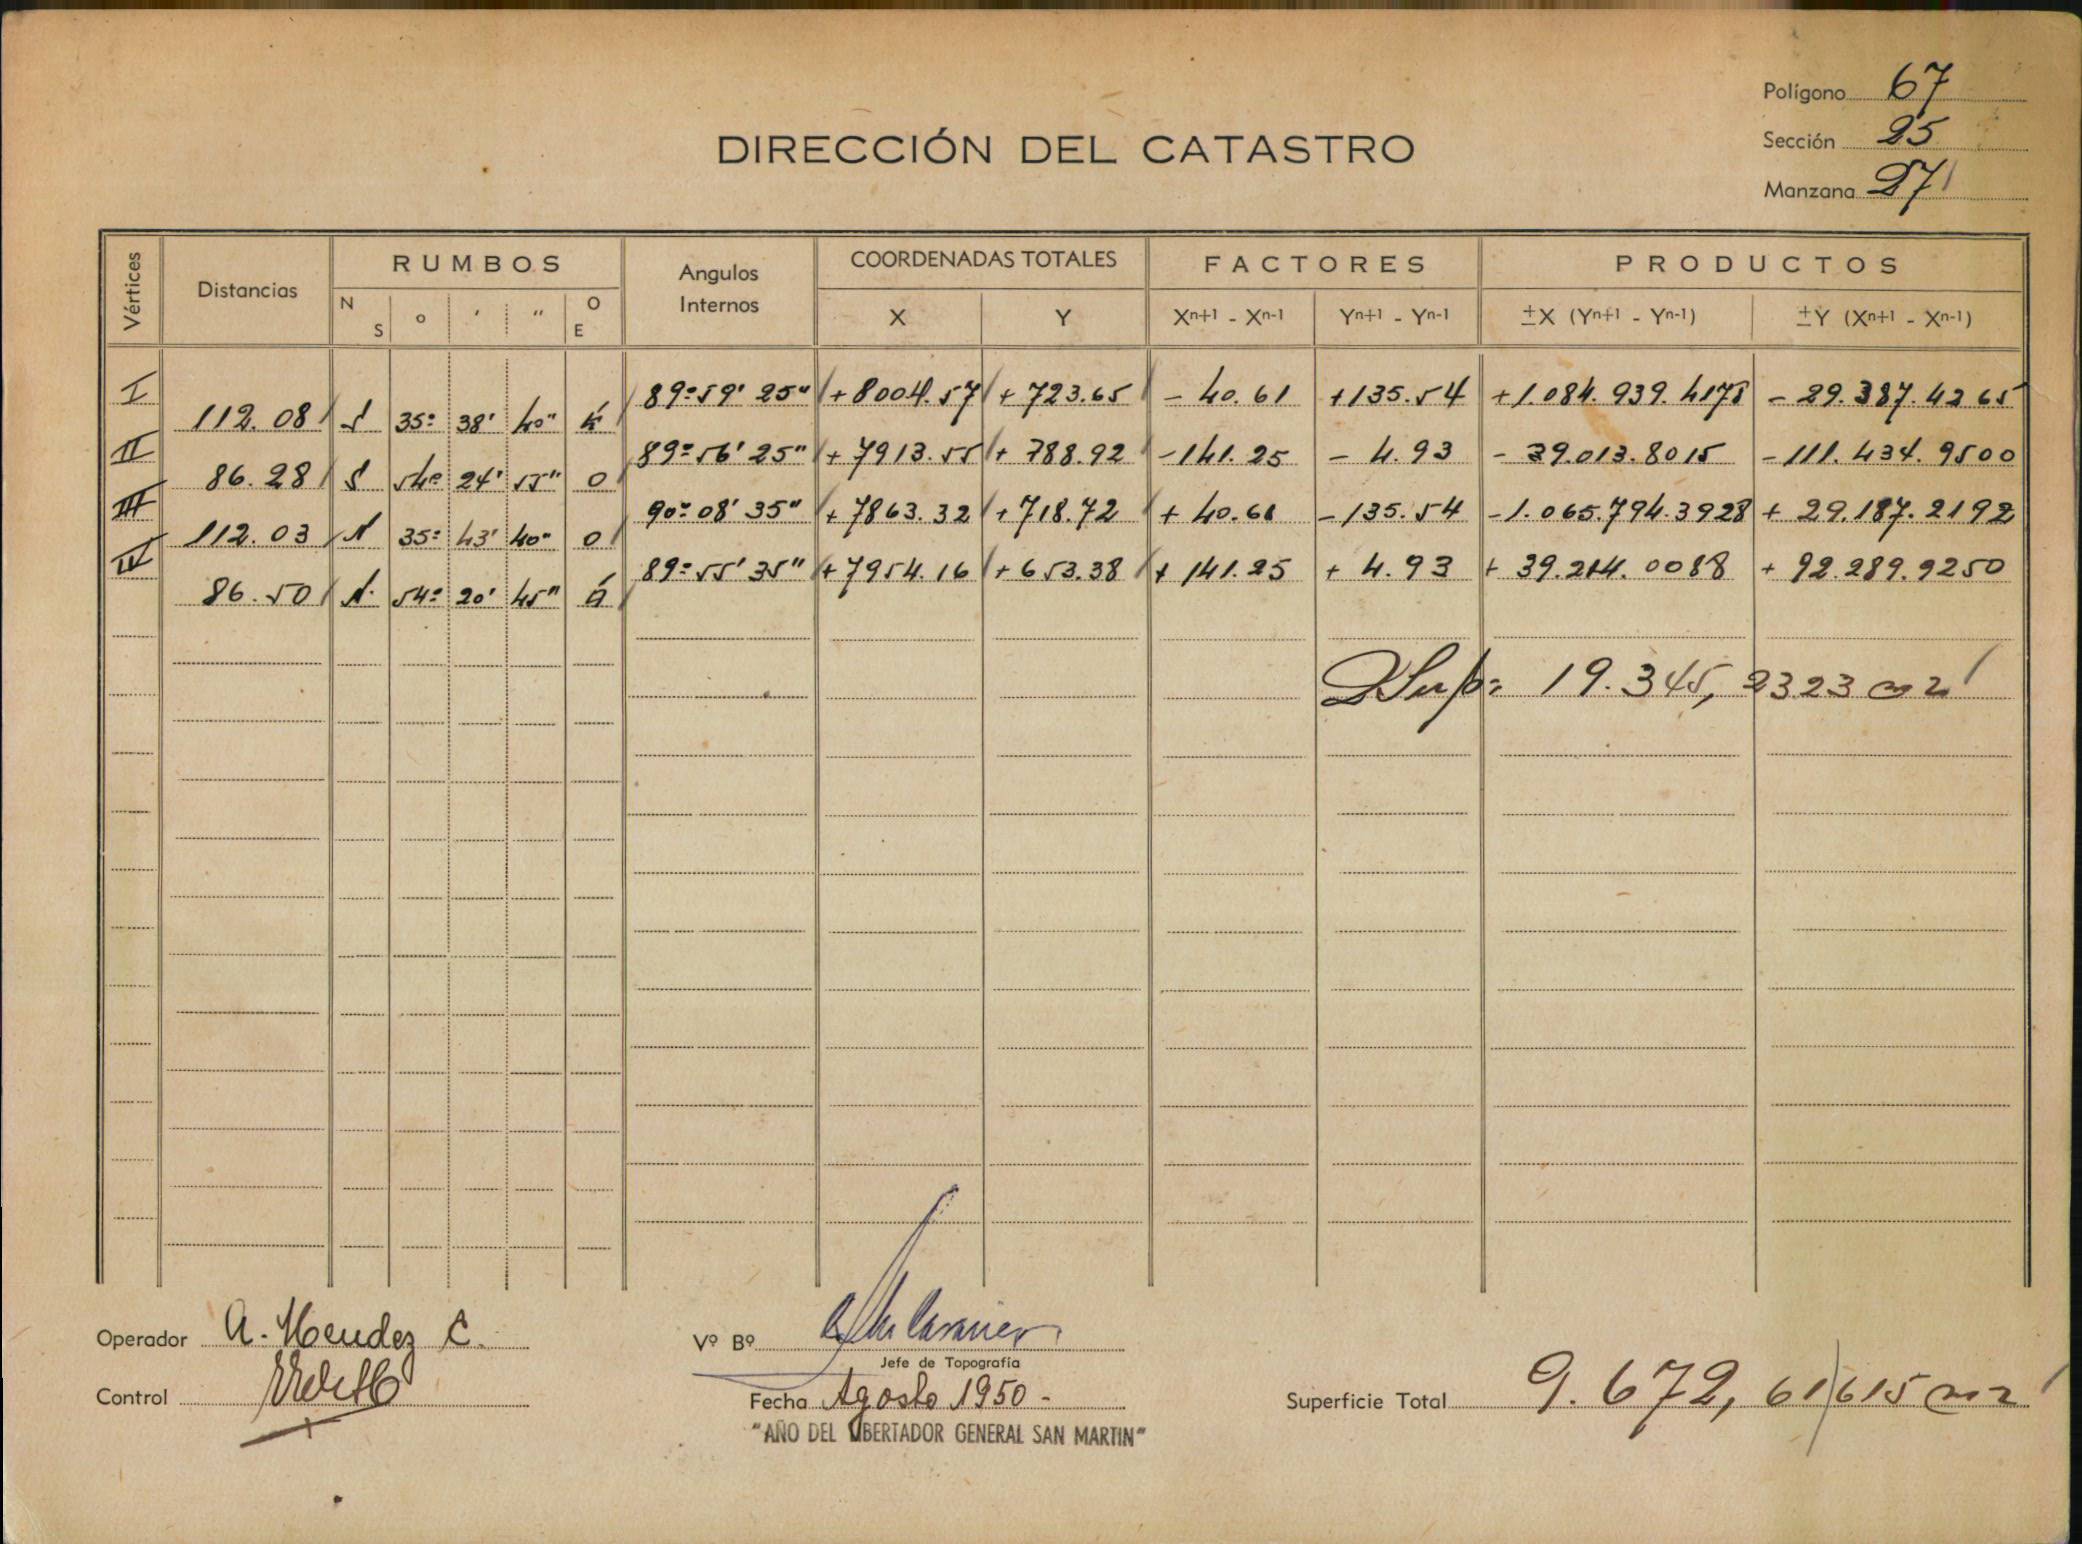 Polígono 67
Sección 25
Manzana 27
DIRECCIÓN DEL CATASTRO
Vértices Distancias RUMBOS Angulos Internos COORDENADAS TOTALES FACTORES PRODUCTOS
N S o ' " O E X Y Xn+1 - Xn-1 Yn+1 - Yn-1 ±X (Yn+1 - Yn-1) ±Y (Xn+1 - Xn-1)
I 89º59'25" +8004.57 +723.65 -40.61 +135.54 +1.084.939.4178 -29.387.4265
112.08 S 35º 38' 40" E
II 89º56'25" +7913.55 +788.92 -141.25 -4.93 -39.013.8015 -111.434.9500
86.28 S 54º 24' 55" O
III 90º08'35" +7863.32 +718.72 +40.61 -135.54 -1.065.794.3928 +29.187.2192
112.03 N 35º 43' 40" O
IV 89º55'35" +7954.16 +653.38 +141.25 +4.93 +39.214.0088 +92.289.9250
86.50 N 54º 20' 45" E
2Sup= 19.345,2323 m2
Operador A. Mendez C.
Control
Vº Bº
Jefe de Topografía
Fecha Agosto 1950-
"AÑO DEL LIBERTADOR GENERAL SAN MARTIN"
Superficie Total 9.672,61/615 m2